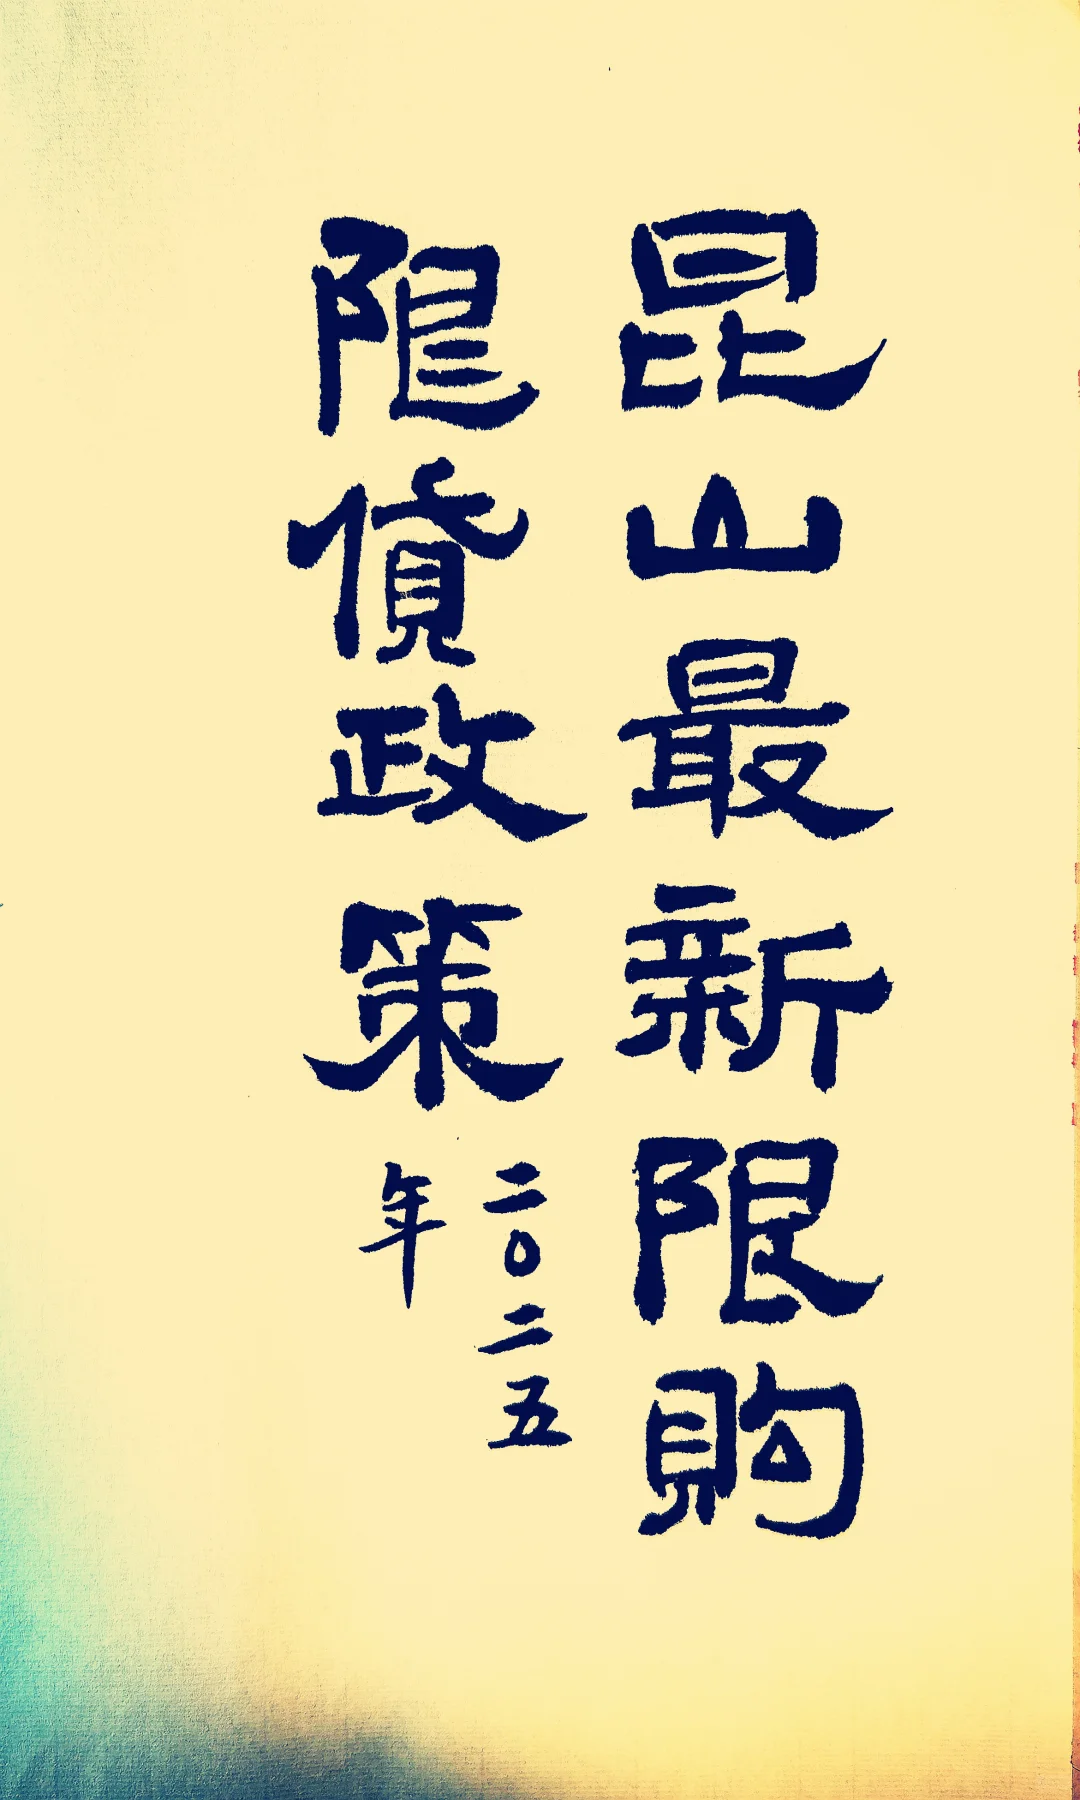 昆山最新限購
限貸政策
二〇二五
年